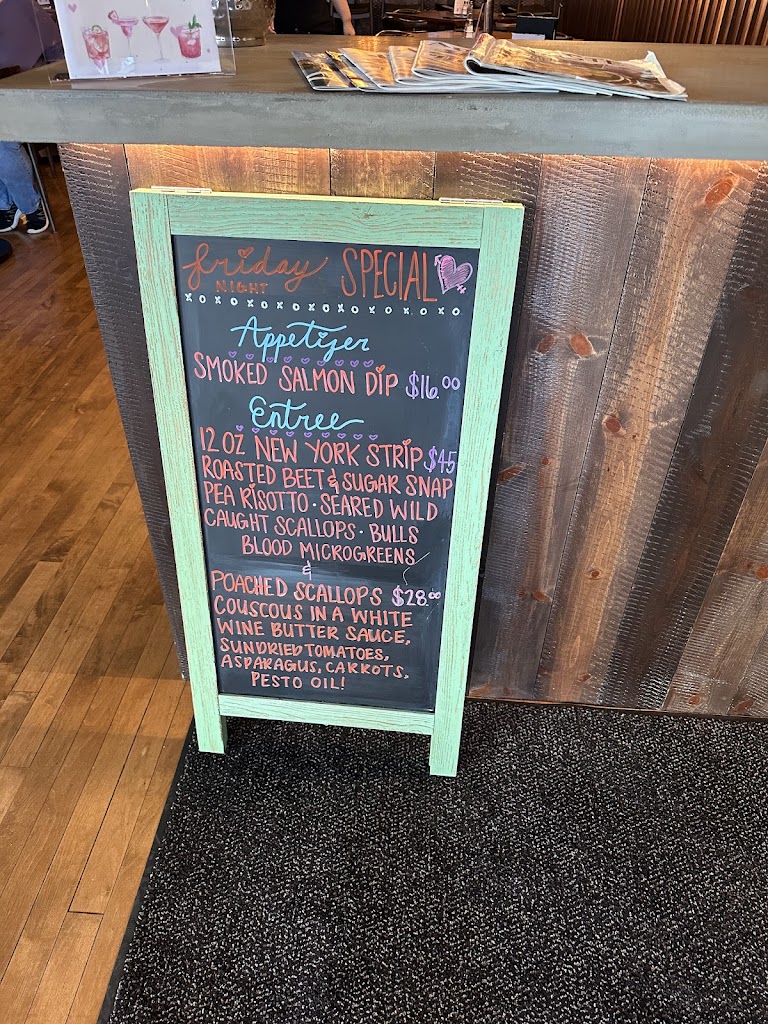 friday SPECIAL
NIGHT
XOXOXOXOXOXOXOXOXOXO
Appetizer
SMOKED SALMON DIP $16.00
Entree
12 OZ NEW YORK STRIP $45
ROASTED BEET & SUGAR SNAP
PEA RISOTTO · SEARED WILD
CAUGHT SCALLOPS · BULLS
BLOOD MICROGREENS
&
POACHED SCALLOPS $28.00
COUSCOUS IN A WHITE
WINE BUTTER SAUCE,
SUNDRIED TOMATOES,
ASPARAGUS, CARROTS,
PESTO OIL!